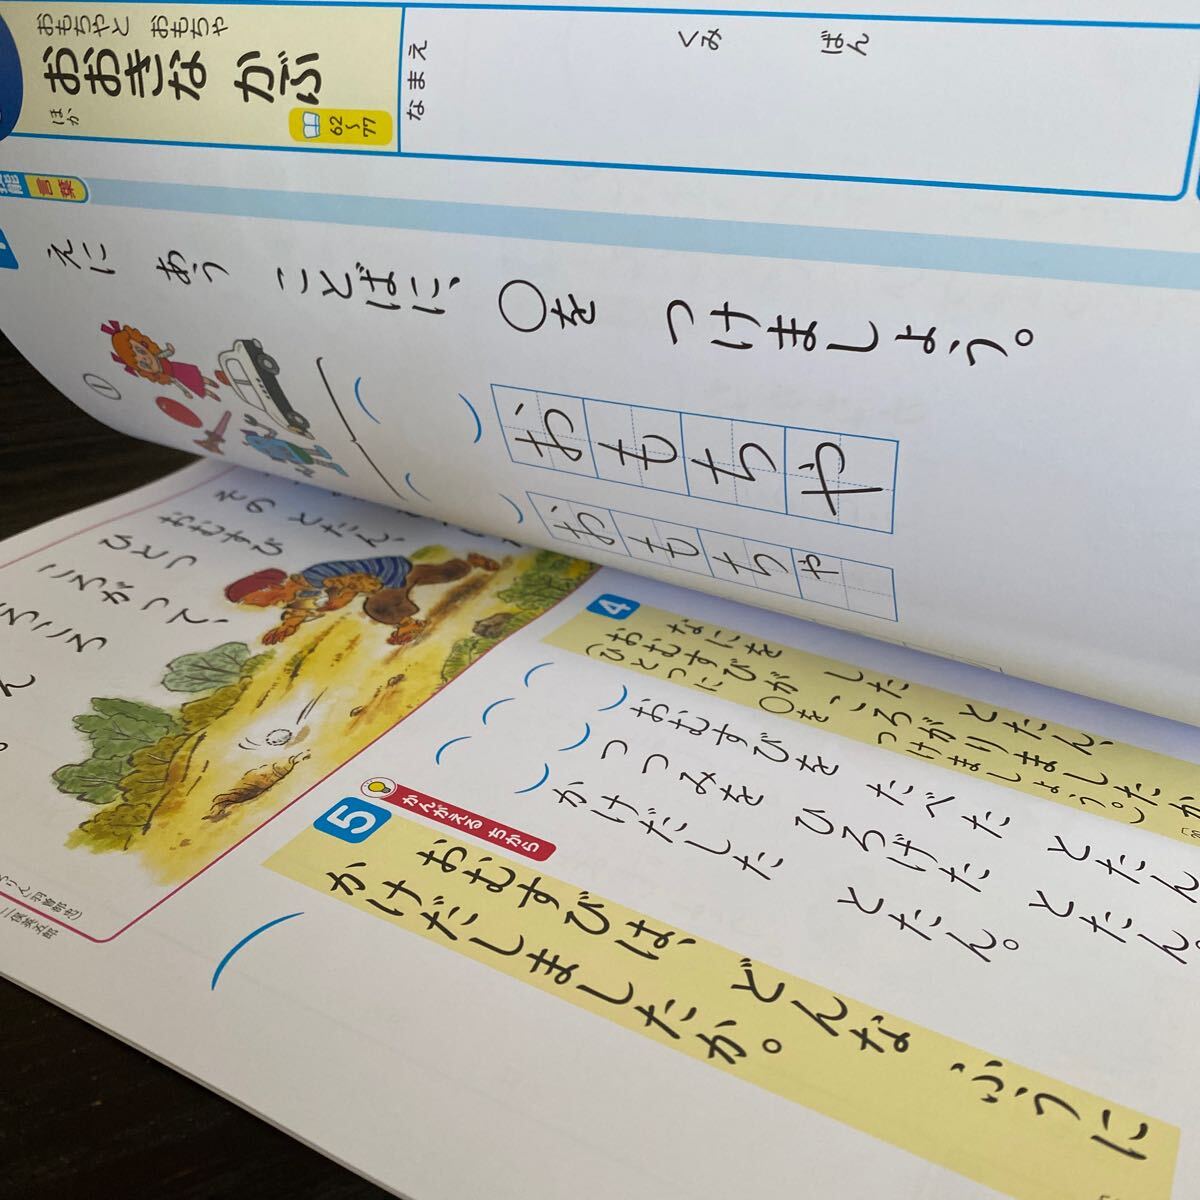 おもちやと おもちゃ
おおきな かぶ
ほか
62〜77
なまえ
くみ
ばん
言葉
えに あう ことばに、○を つけましょう。
①
おもちや
おもちゃ
その とたん、
おむすび
ひとつ
ころがって、
ころころ
4
なにを した とたん、
おむすびが ころがりましたか
(ひとつに ○を つけましょう。)
おむすびを たべた とたん
つつみを ひろげた とたん。
かけだした とたん。
かんがえる ちから
5
おむすびは、どんな ふうに
かけだしましたか。